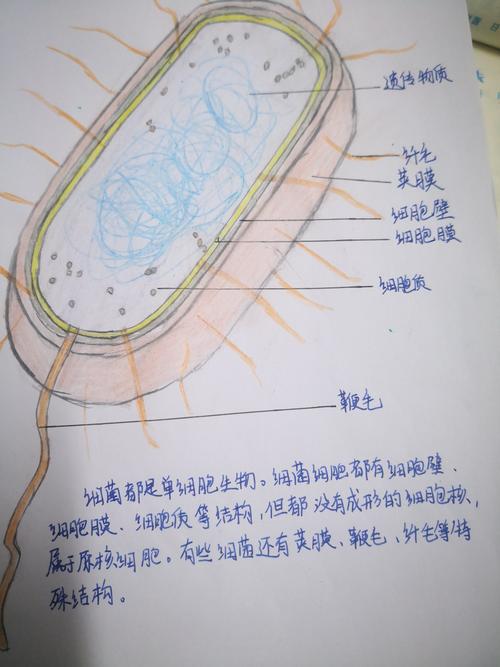 遗传物质
纤毛
荚膜
细胞壁
细胞膜
细胞质
鞭毛
细菌都是单细胞生物。细菌细胞都有细胞壁、
细胞膜、细胞质等结构,但都没有成形的细胞核,
属于原核细胞。有些细菌还有荚膜、鞭毛、纤毛等特
殊结构。